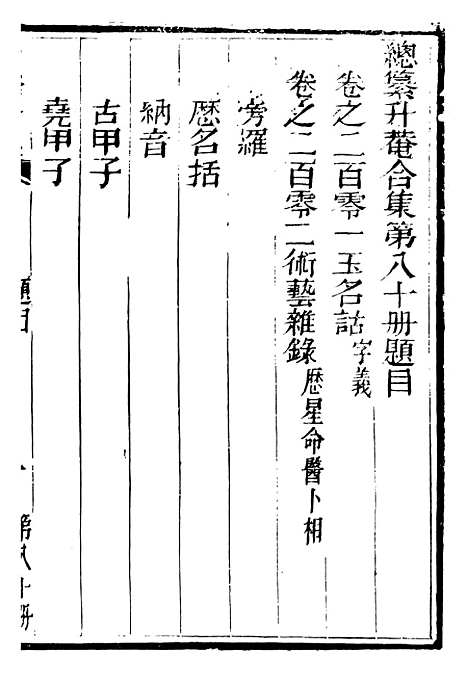 總纂升菴合集第八十册題目
卷之二百零一玉名詁字義
卷之二百零二術藝雜錄歷星命醫卜相
旁羅
歷名括
納音
古甲子
堯甲子
題目
第八十册